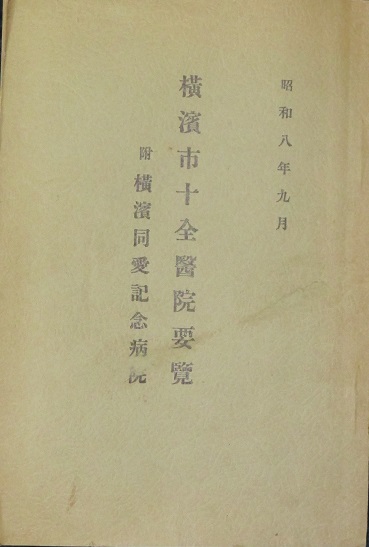 昭和八年九月
橫濱市十全醫院要覽
附橫濱同愛記念病院